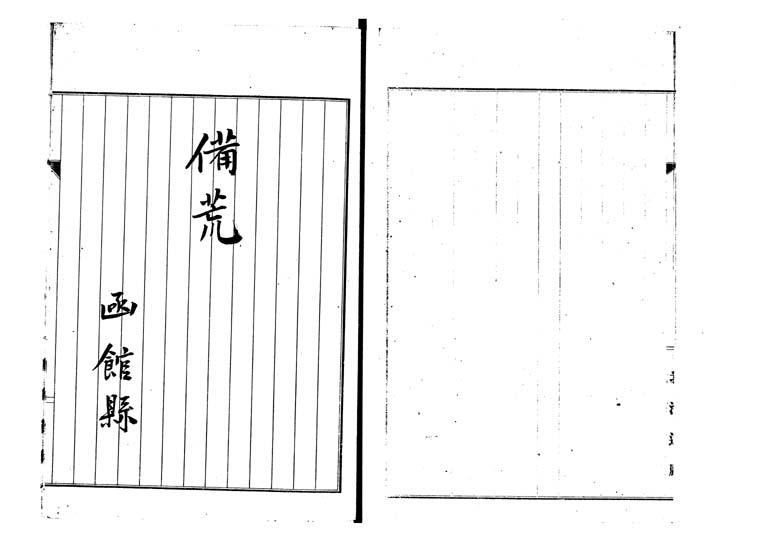 備荒
函館縣